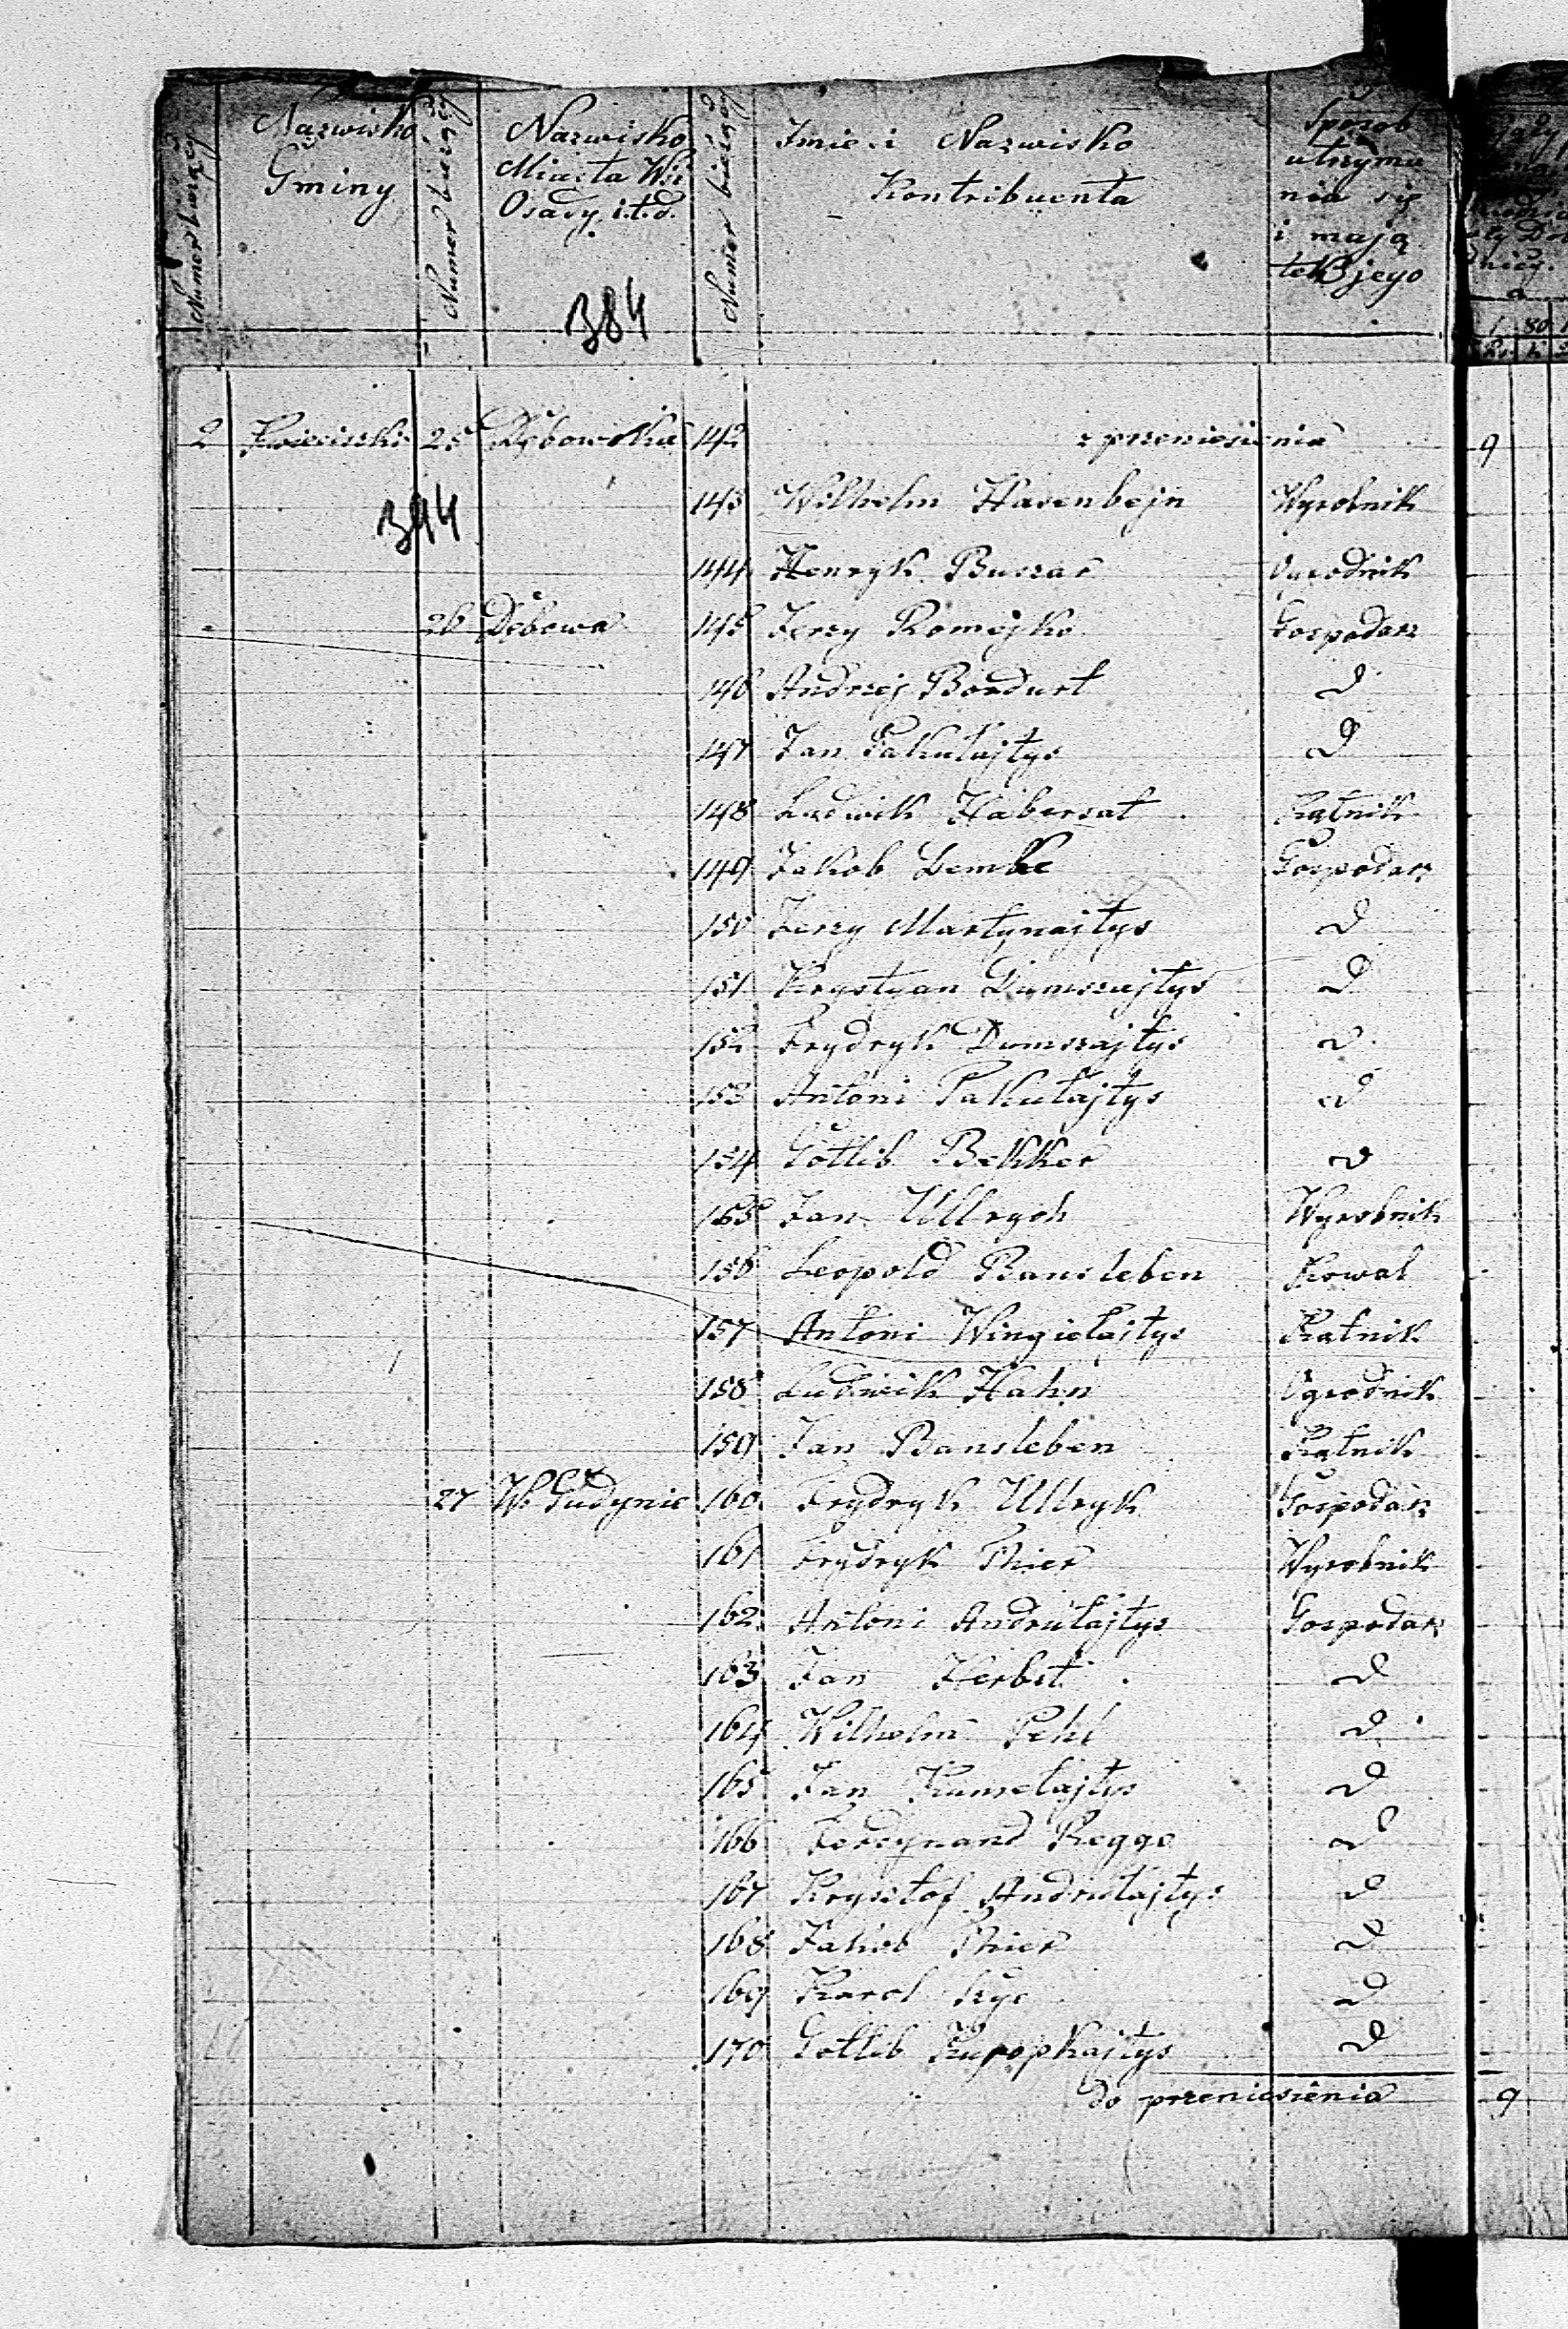 Numer bieżący
Nazwisko Gminy
Numer bieżący
Nazwisko Miasta Wsi Osady i.t.d.
Numer bieżący
Imie i Nazwisko Kontribuenta
Sposob utrzyma nia się i mają tek jego
384
2 Kwieciszki 25 Dębowska 142 z przeniesienia 9
344
143 Wilhelm Hasenbejn Wyrobnik
144 Henryk Buszar Ogrodnik
26 Dębowa 145 Jerzy Romejko Gospodarz
146 Andrzej Bordurt d
147 Jan Pakułajtys d
148 Ludwik Habersat Kątnik
149 Jakob Lemke Gospodarz
150 Jerzy Martynajtys d
151 Krystyan Dumszajtys d
152 Frydryk Dumszajtys d
153 Antoni Pakułajtys d
154 Gottlib Bekker d
155 Jan Ullrych Wyrobnik
156 Leopold Bansleben Kowal
157 Antoni Wingiełajtys Kątnik
158 Ludwik Hahn Ogrodnik
159 Jan Bansleben Kątnik
27 W. Gudynie 160 Frydryk Ullryk Gospodarz
161 Frydryk Thier Wyrobnik
162 Antoni Andrułajtys Gospodarz
163 Jan Herbst d
164 Wilhelm Pehl d
165 Jan Kumetajtys d
166 Ferdynand Regge d
167 Krysztof Andrułajtys d
168 Jakob Thier d
169 Karol d
170 Gotlib Kuropkajtys d
do przeniesienia 9